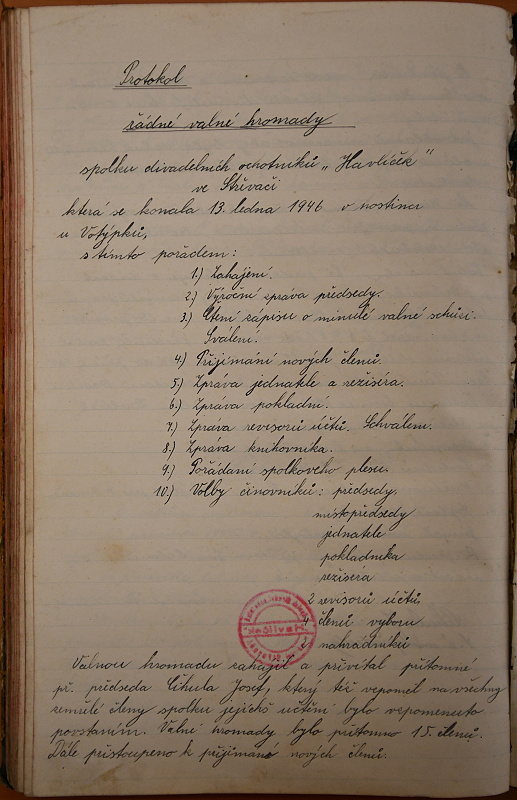 Protokol
řádné valné hromady
spolku divadelních ochotníků „Havlíček“
ve Střevači
která se konala 13. ledna 1946 v hostinci
u Votýpků,
s tímto pořadem:
1.) Zahájení.
2.) Výroční zpráva předsedy.
3.) Čtení zápisu o minulé valné schůzi.
Sválení.
4.) Přijímání nových členů.
5.) Zpráva jednatele a režiséra.
6.) Zpráva pokladní.
7.) Zpráva revisorů účtů. Schválení.
8.) Zpráva knihovníka.
9.) Pořádaní spolkového plesu.
10.) Volby činovníků: předsedy,
místopředsedy
jednatele
pokladníka
režisera
2 revisorů účtů
4 členů vyboru
náhradníků
Havlíček
Valnou hromadu zahájil a přivítal přítomné
př. předseda Cihula Josef, který též vzpoměl na všechny
zemřelé členy spolku jejichž uctění bylo vzpomenuto
povstaním. Valné hromady bylo přítomno 15 členů.
Dále přistoupeno k přijímané nových členů.